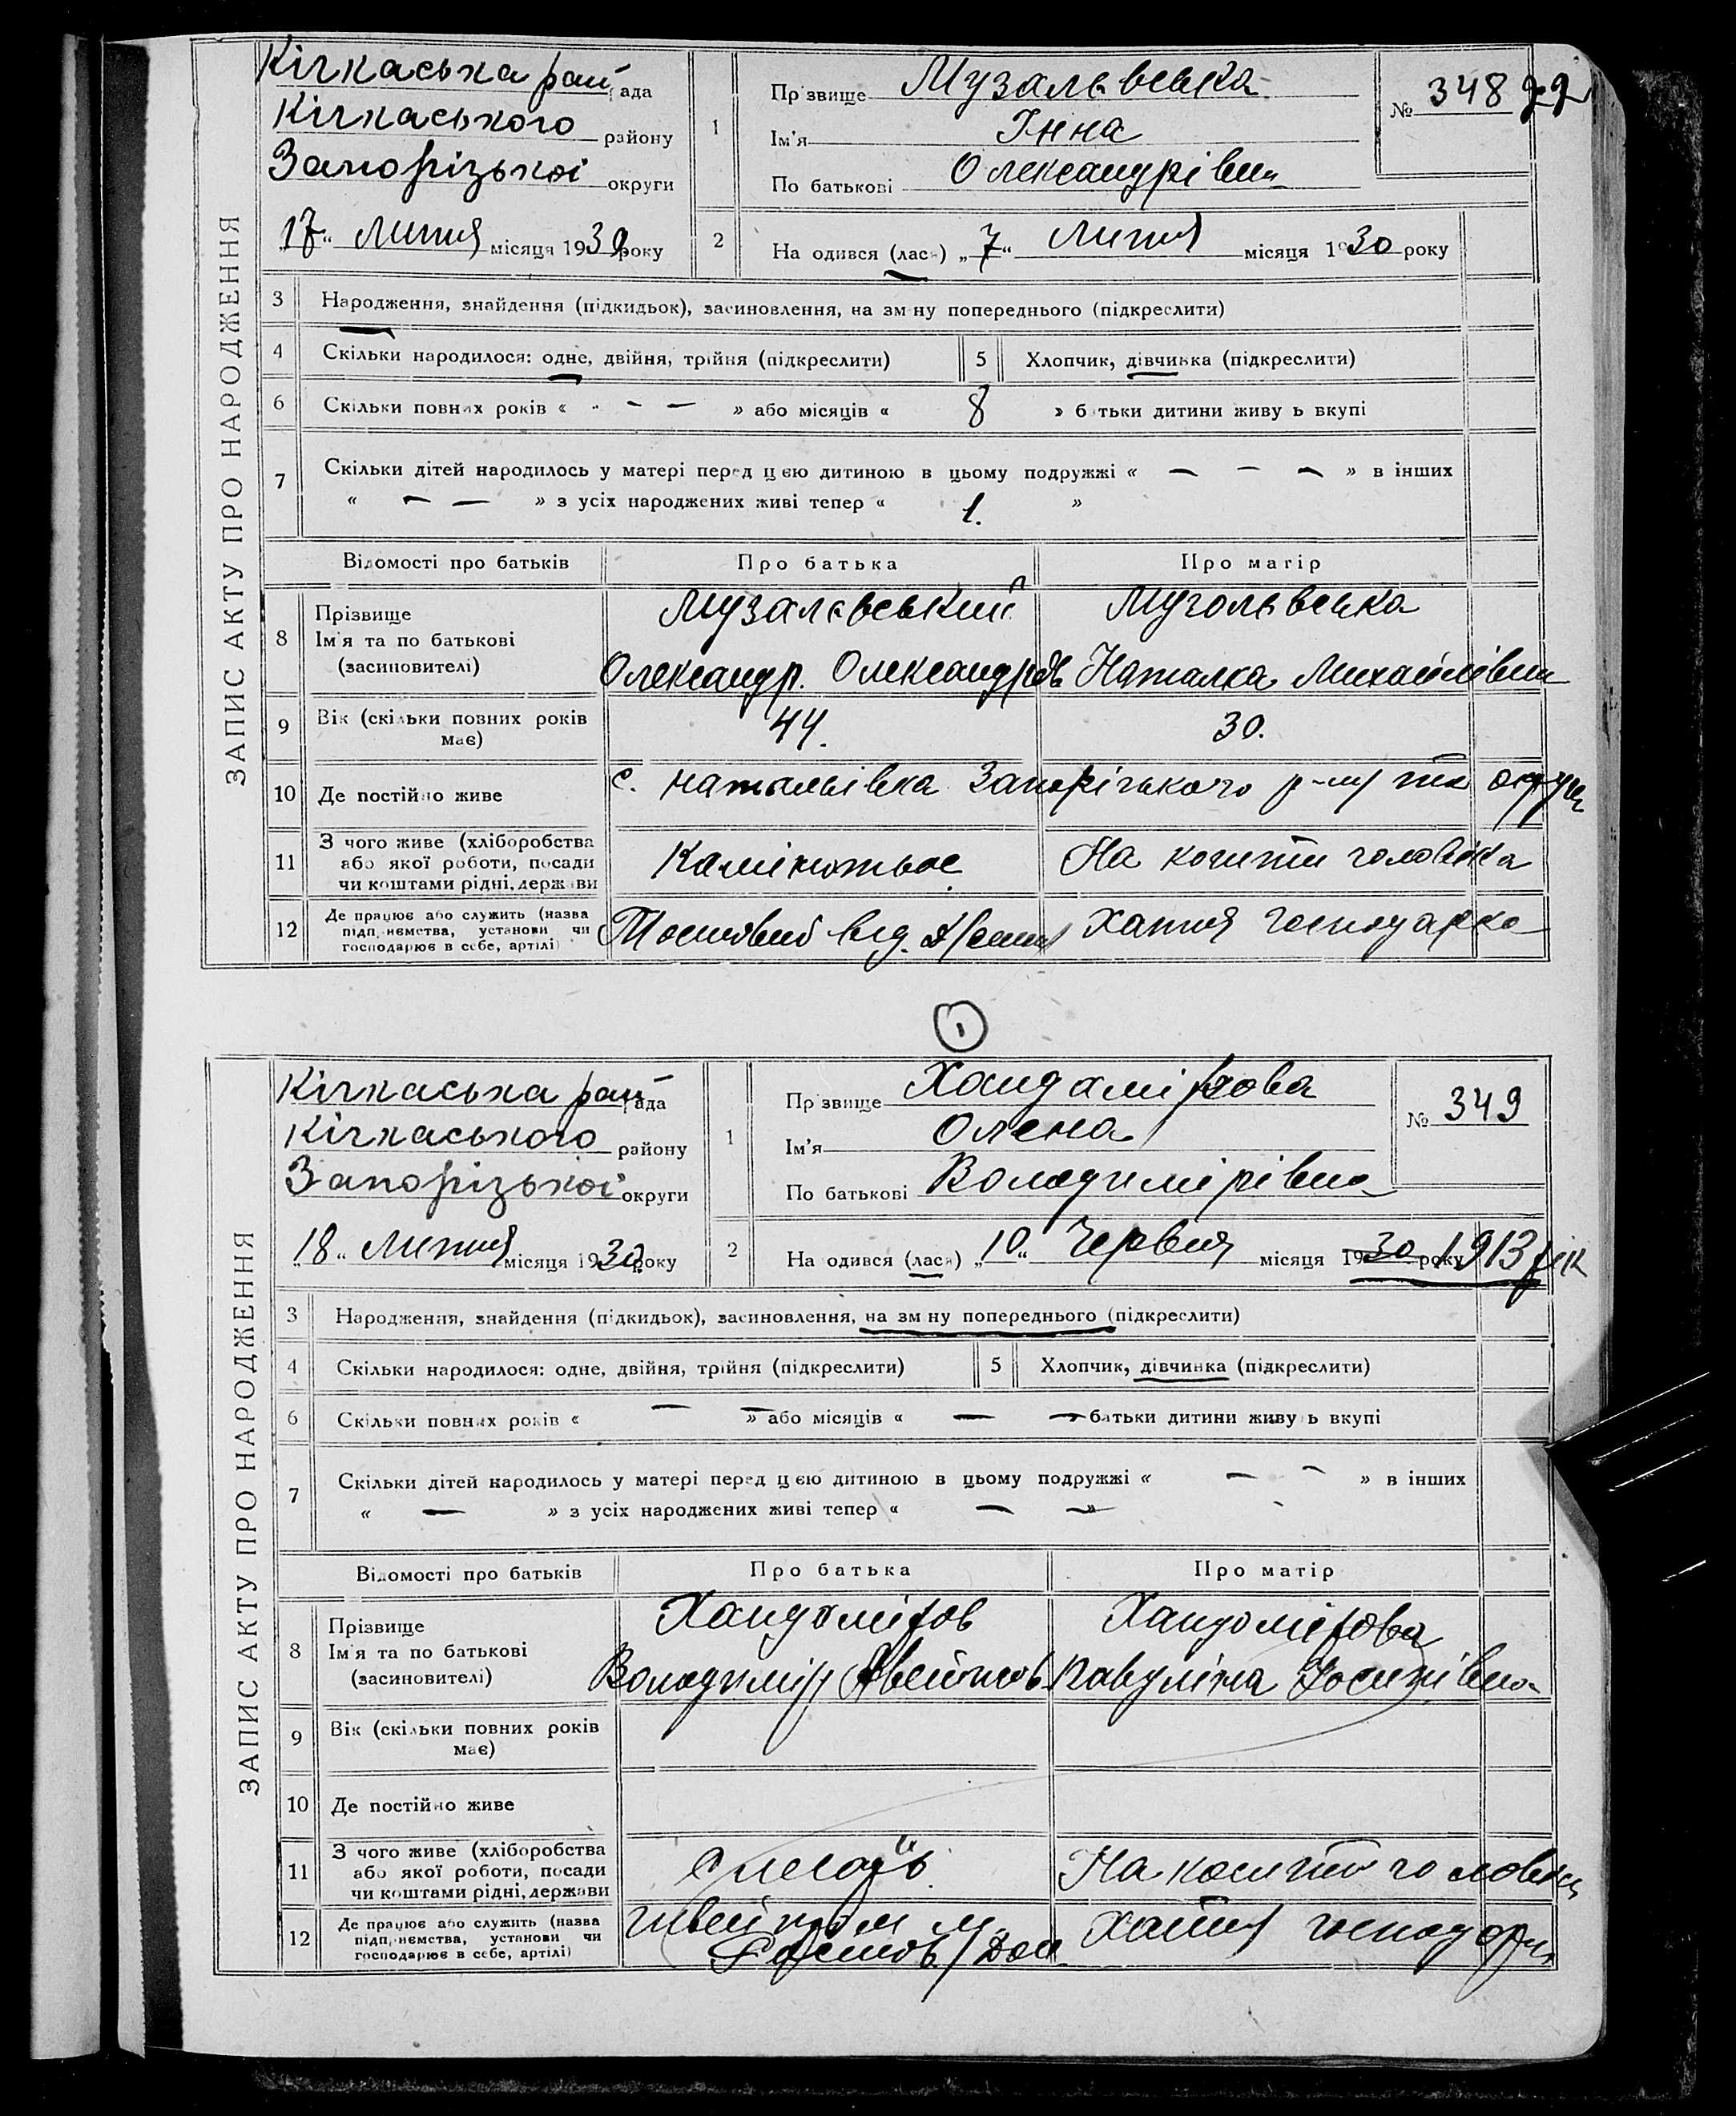 ЗАПИС АКТУ ПРО НАРОДЖЕННЯ
Кічкаська рай ада
Кічкаського району
Запорізької округи
17 „ Липня місяця 1930 року
1
Пр звище Музалєвська
Ім'я Інна
По батькові Олександрівна
№ 348
2
На одився (лас ) „ 7 “ Липня місяця 1930 року
3 Народження, знайдення (підкидьок), засиновлення, на зм ну попереднього (підкреслити)
4 Скільки народилося: одне, двійня, трійня (підкреслити) 5 Хлопчик, дівчинка (підкреслити)
6 Скільки повних років « - – – » або місяців « 8 » б тьки дитини живу ь вкупі
7 Скільки дітей народилось у матері перед цією дитиною в цьому подружжі « – – – » в інших
« – – » з усіх народжених живі тепер « 1. »
Відомості про батьків Про батька Про матір
8 Прізвище Ім'я та по батькові (засиновителі)
Музалєвський Музалєвська
Олександр. Олександров Наталка Михайлівна
9 Вік (скільки повних років має) 44. 30.
10 Де постійно живе с. Натальівка Запорізького р-ну та округи
11 З чого живе (хліборобства або якої роботи, посади чи коштами рідні, держави
На кошти чоловіка
12 Де працює або служить (назва підп, немства, установи чи господарює в себе, артілі)
Мостовий від. Хатня господарка
1
ЗАПИС АКТУ ПРО НАРОДЖЕННЯ
Кічкаська рай ада
Кічкаського району
Запорізької округи
„18„ Липня місяця 1930 року
1
Пр звище Хандамірова
Ім'я Олена
По батькові Володимірівна
№ 349
2
На одився (лас ) „10“ Червня місяця 1930 року 1913 рік
3 Народження, знайдення (підкидьок), засиновлення, на зм ну попереднього (підкреслити)
4 Скільки народилося: одне, двійня, трійня (підкреслити) 5 Хлопчик, дівчинка (підкреслити)
6 Скільки повних років « – – » або місяців « – – батьки дитини живу ь вкупі
7 Скільки дітей народилось у матері перед цією дитиною в цьому подружжі « – – » в інших
« – » з усіх народжених живі тепер « – – »
Відомості про батьків Про батька Про матір
8 Прізвище Ім'я та по батькові (засиновителі)
Хандаміров Хандамірова
Володимір Павуліна Йосипівна
9 Вік (скільки повних років має)
10 Де постійно живе
11 З чого живе (хліборобства або якої роботи, посади чи коштами рідні, держави
На кошти чоловіка
12 Де працює або служить (назва підп, немства, установи чи господарює в себе, артілі)
Швейпром м. Хатня господарка
Ростов/Дон